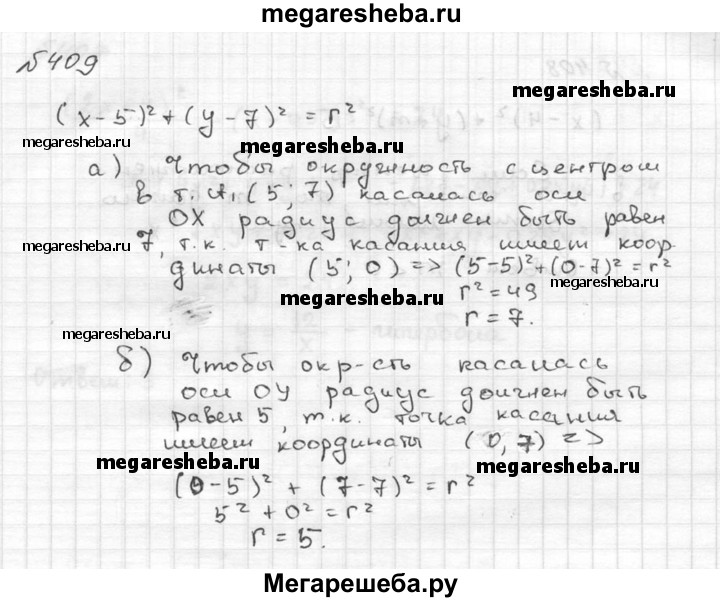 megaresheba.ru
№409
megaresheba.ru
(x-5)²+(y-7)²=r²
megaresheba.ru
megaresheba.ru
а) Чтобы окружность с центром
в т. A₁(5; 7) касалась оси
OX радиус должен быть равен
megaresheba.ru
7, т.к. т-ка касания имеет коор-
динаты (5; 0) => (5-5)²+(0-7)²=r²
megaresheba.ru
r²=49
r=7.
megaresheba.ru
б) Чтобы окр-сть касалась
оси OY радиус должен быть
равен 5, т.к. точка касания
имеет координаты (0,7) =>
megaresheba.ru
megaresheba.ru
(0-5)² + (7-7)² = r²
5² + 0² = r²
r = 5.
Мегарешеба.ру